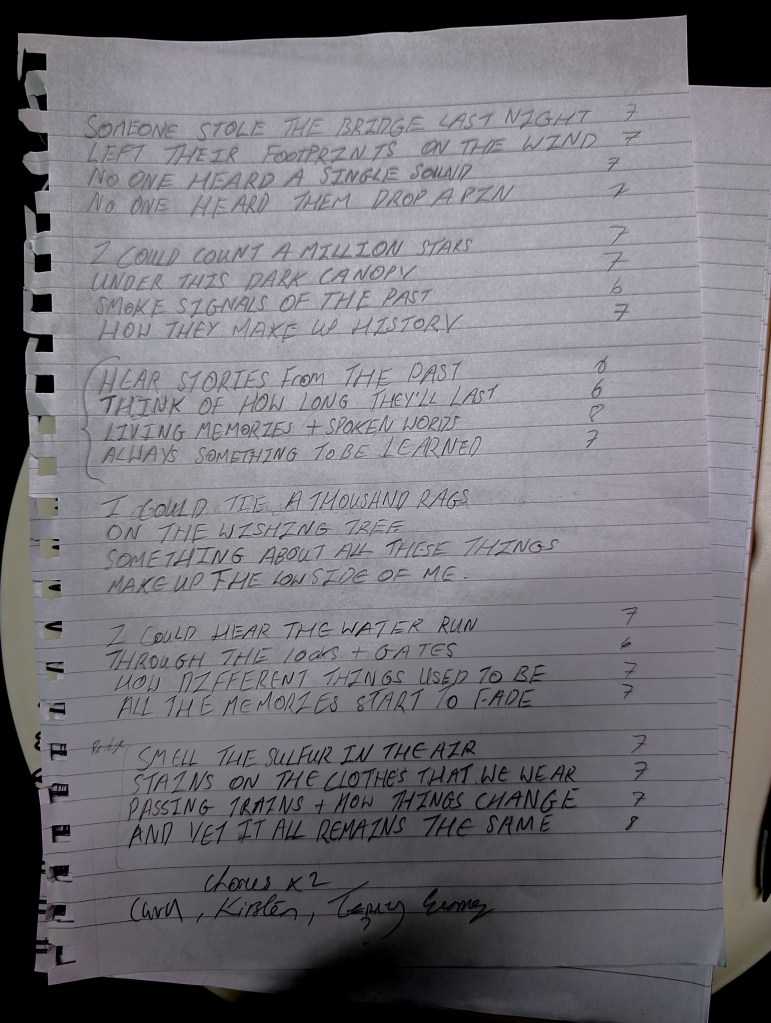 SOMEONE STOLE THE BRIDGE LAST NIGHT 7
LEFT THEIR FOOTPRINTS ON THE WIND 7
NO ONE HEARD A SINGLE SOUND 7
NO ONE HEARD THEM DROP A PIN 7
I COULD COUNT A MILLION STARS 7
UNDER THIS DARK CANOPY 7
SMOKE SIGNALS OF THE PAST 6
HOW THEY MAKE UP HISTORY 7
HEAR STORIES From THE PAST 6
THINK OF HOW LONG THEY'LL LAST 6
LIVING MEMORIES + SPOKEN WORDS 8
ALWAYS SOMETHING TO BE LEARNED 7
I COULD TIE A THOUSAND RAGS
ON THE WISHING TREE
SOMETHING ABOUT ALL THESE THINGS
MAKE UP THE LOW SIDE OF ME.
I COULD HEAR THE WATER RUN 7
THROUGH THE locks + GATES 6
HOW DIFFERENT THINGS USED TO BE 7
ALL THE MEMORIES START TO FADE 7
Bridge
SMELL THE SULFUR IN THE AIR 7
STAINS ON THE CLOTHES THAT WE WEAR 7
PASSING TRAINS + HOW THINGS CHANGE 7
AND YET IT ALL REMAINS THE SAME 8
Chorus x2
Kirsten,
?